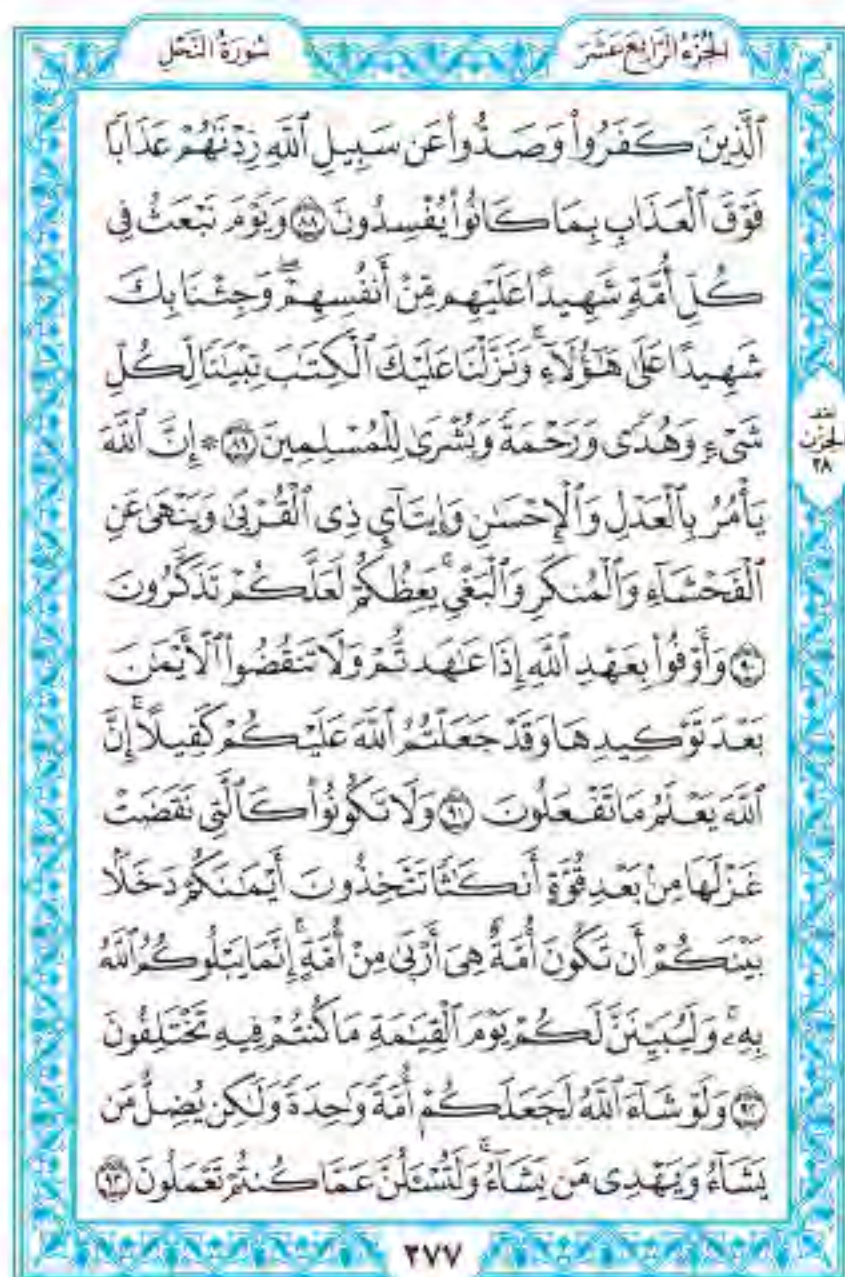 الجزء الرابع عشر
سورة النحل
ٱلَّذِينَ كَفَرُوا۟ وَصَدُّوا۟ عَن سَبِيلِ ٱللَّهِ زِدْنَٰهُمْ عَذَابًا
فَوْقَ ٱلْعَذَابِ بِمَا كَانُوا۟ يُفْسِدُونَ ۝٨٨ وَيَوْمَ نَبْعَثُ فِى
كُلِّ أُمَّةٍ شَهِيدًا عَلَيْهِم مِّنْ أَنفُسِهِمْ ۖ وَجِئْنَا بِكَ
شَهِيدًا عَلَىٰ هَٰٓؤُلَآءِ ۚ وَنَزَّلْنَا عَلَيْكَ ٱلْكِتَٰبَ تِبْيَٰنًا لِّكُلِّ
شَىْءٍ وَهُدًى وَرَحْمَةً وَبُشْرَىٰ لِلْمُسْلِمِينَ ۝٨٩ ۞ إِنَّ ٱللَّهَ
يَأْمُرُ بِٱلْعَدْلِ وَٱلْإِحْسَٰنِ وَإِيتَآئِ ذِى ٱلْقُرْبَىٰ وَيَنْهَىٰ عَنِ
ٱلْفَحْشَآءِ وَٱلْمُنكَرِ وَٱلْبَغْىِ ۚ يَعِظُكُمْ لَعَلَّكُمْ تَذَكَّرُونَ
۝٩٠ وَأَوْفُوا۟ بِعَهْدِ ٱللَّهِ إِذَا عَٰهَدتُّمْ وَلَا تَنقُضُوا۟ ٱلْأَيْمَٰنَ
بَعْدَ تَوْكِيدِهَا وَقَدْ جَعَلْتُمُ ٱللَّهَ عَلَيْكُمْ كَفِيلًا ۚ إِنَّ
ٱللَّهَ يَعْلَمُ مَا تَفْعَلُونَ ۝٩١ وَلَا تَكُونُوا۟ كَٱلَّتِى نَقَضَتْ
غَزْلَهَا مِنۢ بَعْدِ قُوَّةٍ أَنكَٰثًا تَتَّخِذُونَ أَيْمَٰنَكُمْ دَخَلًۢا
بَيْنَكُمْ أَن تَكُونَ أُمَّةٌ هِىَ أَرْبَىٰ مِنْ أُمَّةٍ ۚ إِنَّمَا يَبْلُوكُمُ ٱللَّهُ
بِهِۦ ۚ وَلَيُبَيِّنَنَّ لَكُمْ يَوْمَ ٱلْقِيَٰمَةِ مَا كُنتُمْ فِيهِ تَخْتَلِفُونَ
۝٩٢ وَلَوْ شَآءَ ٱللَّهُ لَجَعَلَكُمْ أُمَّةً وَٰحِدَةً وَلَٰكِن يُضِلُّ مَن
يَشَآءُ وَيَهْدِى مَن يَشَآءُ ۚ وَلَتُسْـَٔلُنَّ عَمَّا كُنتُمْ تَعْمَلُونَ ۝٩٣
الحزب
٢٨
٢٧٧